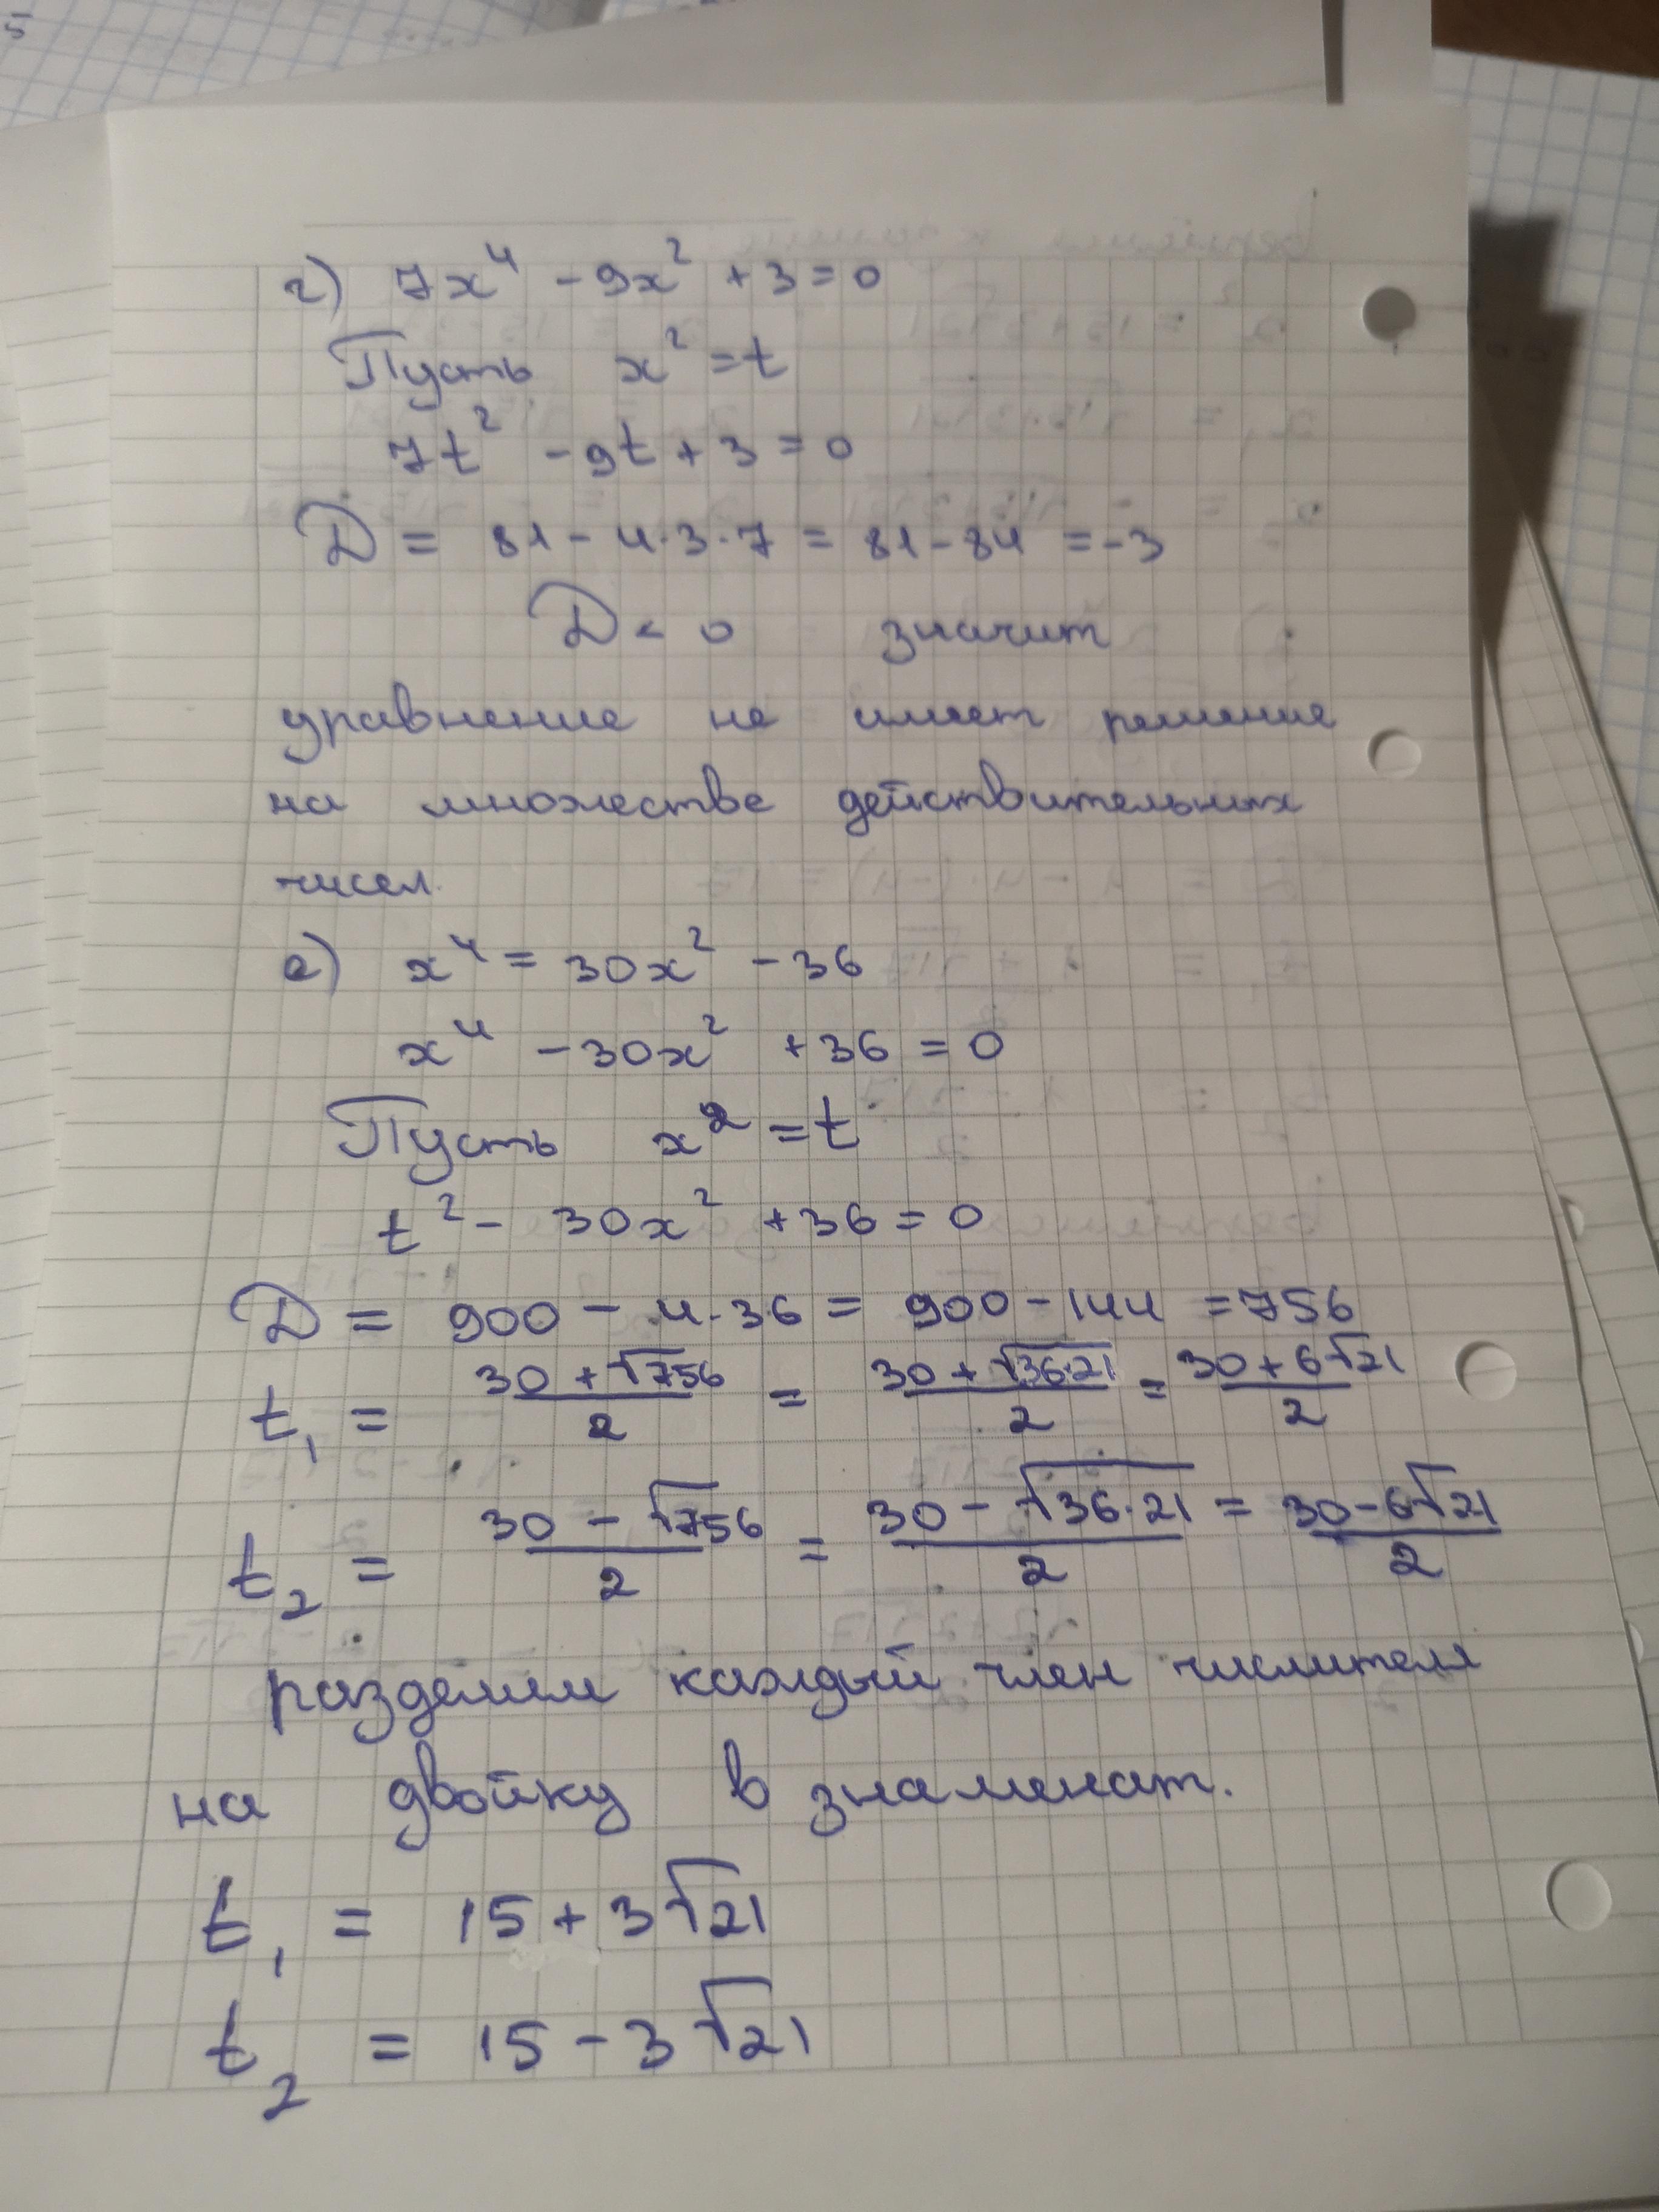 5
г) 7x⁴ - 9x² + 3 = 0
Пусть x² = t
7t² - 9t + 3 = 0
D = 81 - 4·3·7 = 81 - 84 = -3
D < 0 значит
уравнение не имеет решение
на множестве действительных
чисел.
е) x⁴ = 30x² - 36
x⁴ - 30x² + 36 = 0
Пусть x² = t
t² - 30x² + 36 = 0
D = 900 - 4·36 = 900 - 144 = 756
t₁ = (30 + √756)/2 = (30 + √36·21)/2 = (30 + 6√21)/2
t₂ = (30 - √756)/2 = (30 - √36·21)/2 = (30 - 6√21)/2
разделим каждый член числителя
на двойку в знаменат.
t₁ = 15 + 3√21
t₂ = 15 - 3√21